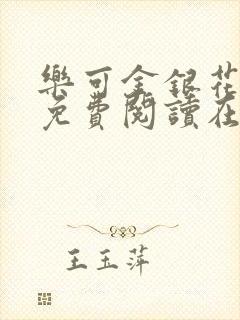 樂可金銀花
免費閱讀在
王玉萍